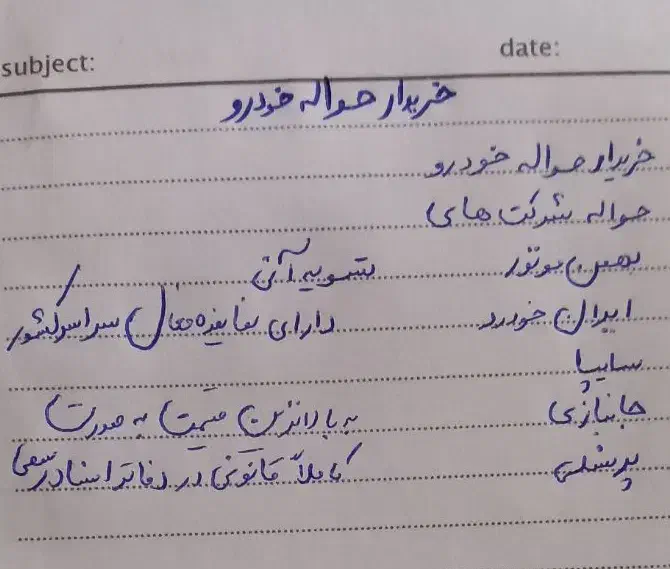 subject: date:
خریدار حواله خودرو
خریدار حواله خودرو
حواله شرکت های
بهمن موتور تسویه آنی
ایران خودرو دارای نماینده فعال سراسر کشور
سایپا
جانبازی به بالاترین قیمت به صورت
پرسنلی کاملاً قانونی در دفاتر اسناد رسمی